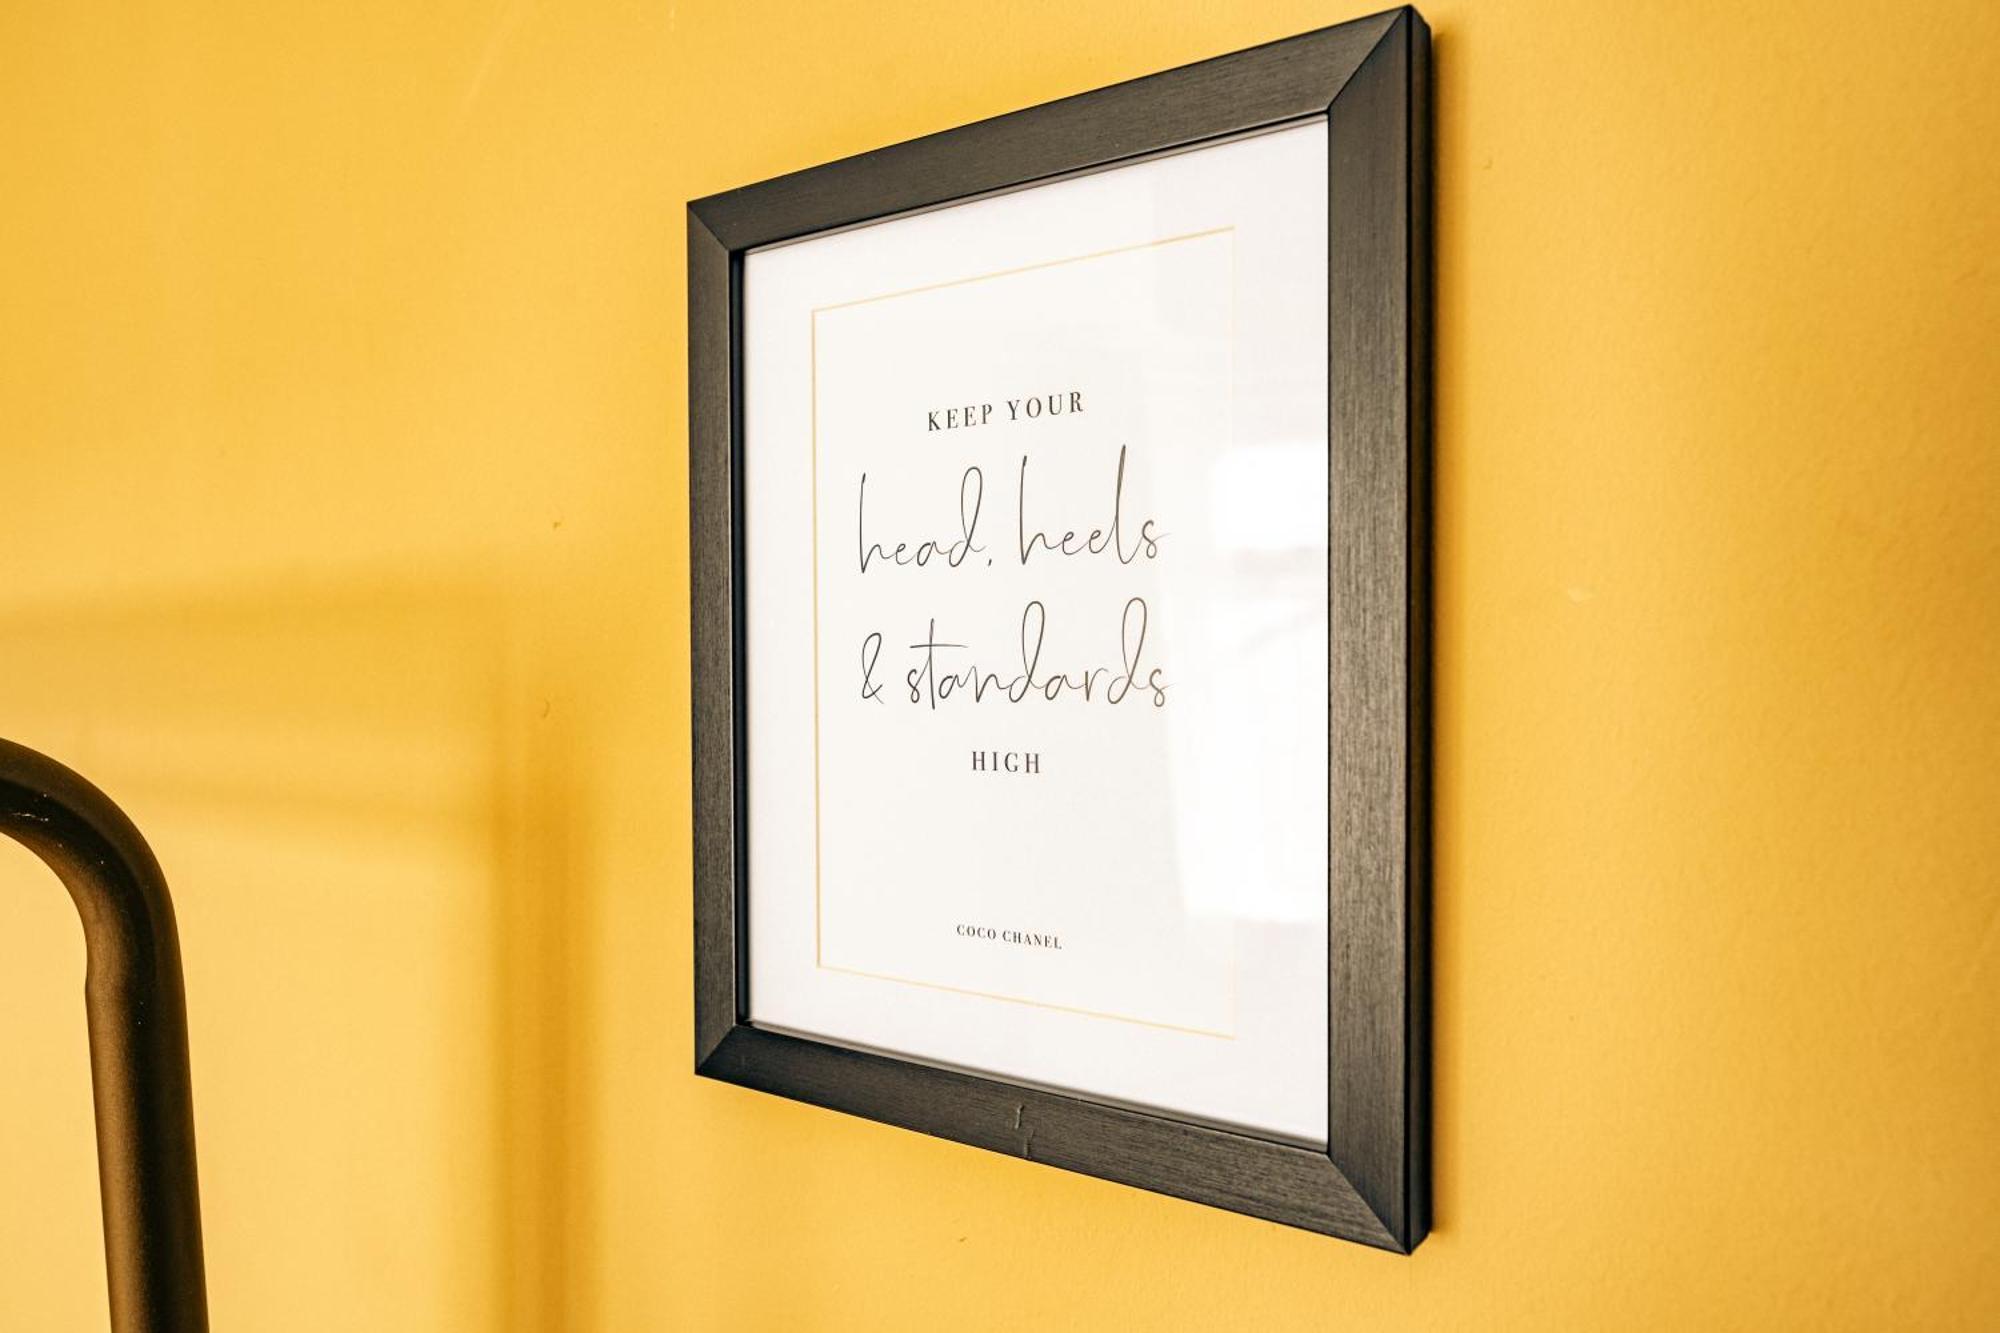 KEEP YOUR
head, heels
& standards
HIGH
COCO CHANEL